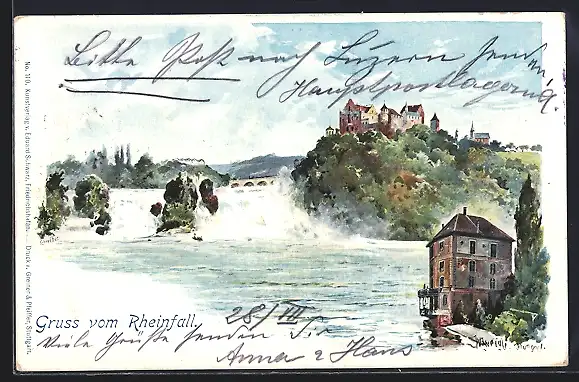 Bitte Post nach Luzern senden
Hauptpostlagernd
Gruss vom Rheinfall.
28/VII
Viele Grüsse senden Dir
Anna & Hans
No. 110. Kunstverlag v. Eduard Schwarz, Friedrichshafen. Druck v. Greiner & Pfeiffer, Stuttgart.